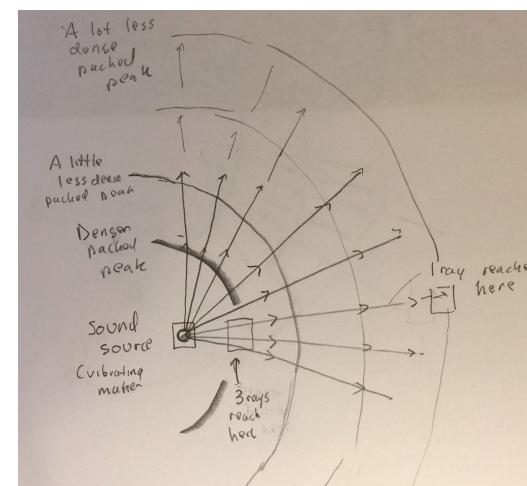 A lot less
dense
packed
peak
A little
less dense
packed peak
Denser
packed
peak
Sound
source
(vibrating
matter
3 rays
reach
here
1 ray reaches
here